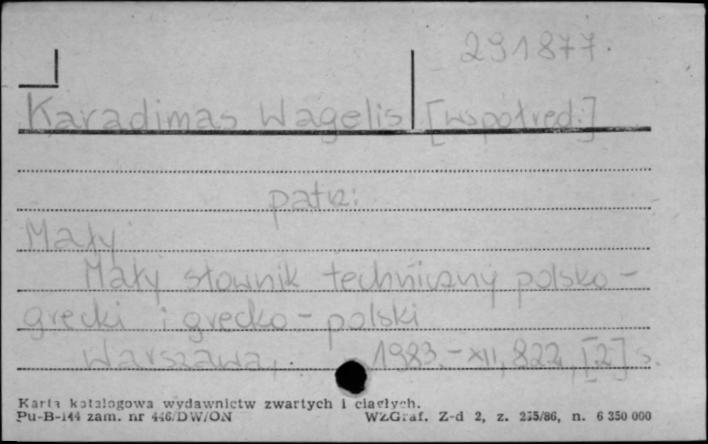 291877.
Karadimas Wagelis [współred.]
patrz:
Mały
Mały słownik techniczny polsko-
grecki i grecko-polski
Warszawa, 1983. - XII, 822, [2] s.
Karta katalogowa wydawnictw zwartych i ciągłych.
Pu-B-144 zam. nr 446/DW/ON WZGraf. Z-d 2, z. 275/86, n. 6 350 000